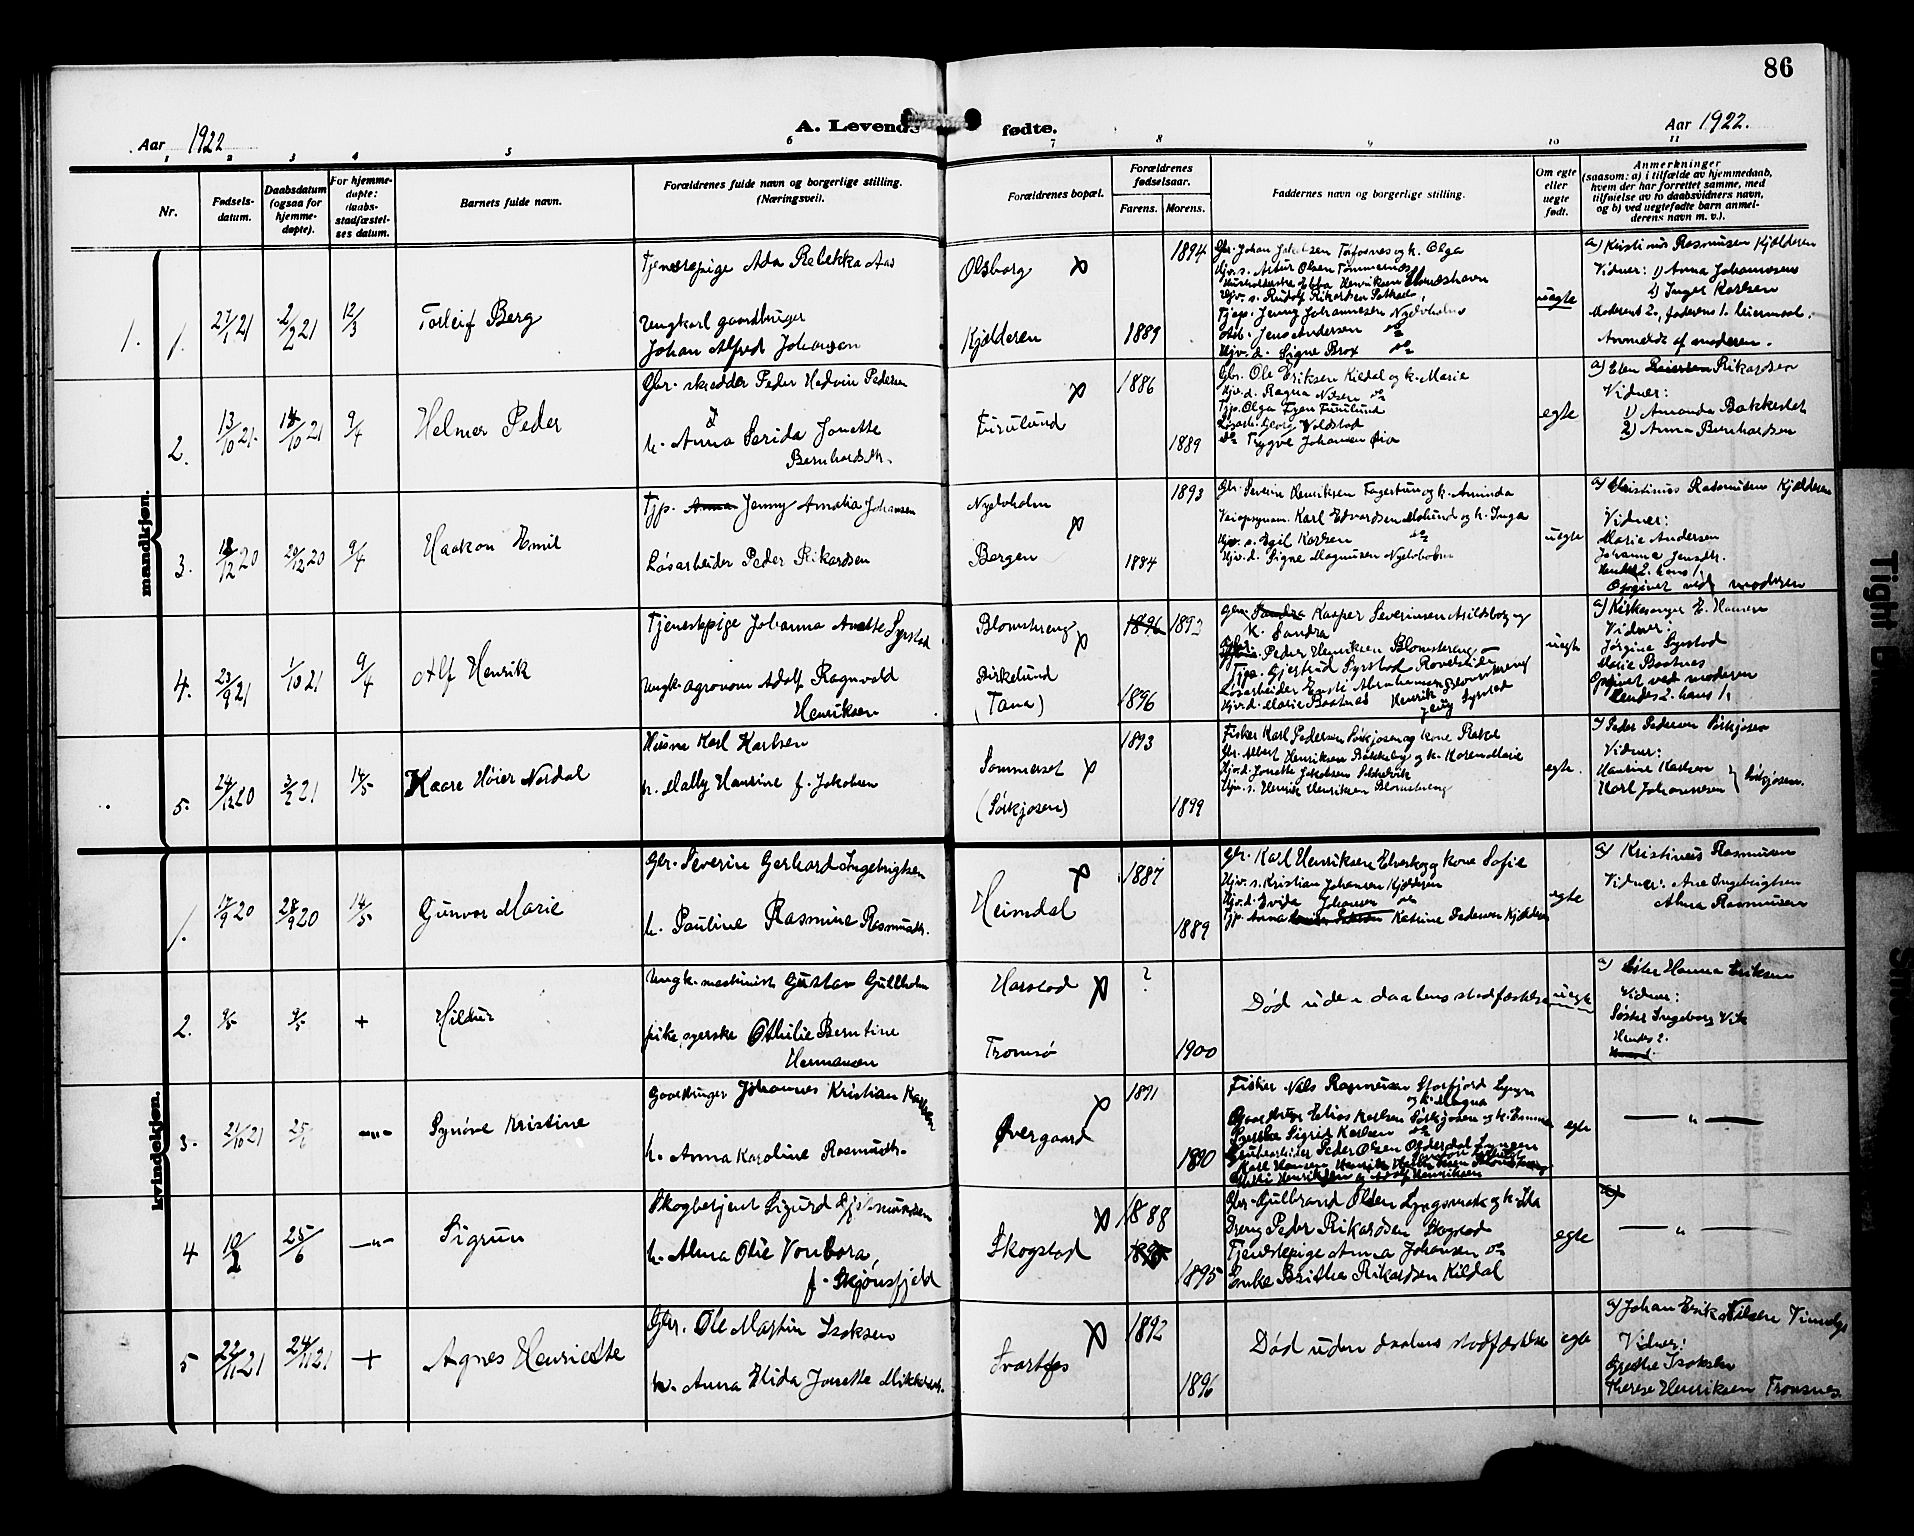 86
A. Levende fødte.
Aar 1922
Aar 1922.
1 2 3 4 5 6 7 8 9 10 11
Nr.
Fødsels-
datum.
Daabsdatum
(ogsaa for
hjemme-
døpte).
For hjemme-
døpte:
daabs-
stadfæstel-
ses datum.
Barnets fulde navn.
Forældrenes fulde navn og borgerlige stilling.
(Næringsvei).
Forældrenes bopæl.
Forældrenes
fødselsaar.
Farens. Morens.
Faddernes navn og borgerlige stilling.
Om egte
eller
uegte
født.
Anmerkninger
(saasom: a) i tilfælde av hjemmedaab,
hvem der har forrettet samme, med
tilføielse av to daabsvidners navn,
og b) ved uegtefødte barn anmel-
derens navn m. v.).
mandkjøn.
1. 1. 27/1 21 2/2 21 12/3
Torleif Berg
Tjenerepige Ada Rebekka Aas
Ungkarl gaardbruger
Johan Alfred Johansen
Olsborg
Kjølderen
1889 1894
Gbr. Johan Jakobsen Torfosnes og k. Olga
Hjv. s. Artur Olsen Tømmernes
Husholderske Ebba Henriksen
Hjv. s. Rudolf Rikardsen
Tjap. Jenny Johannesen Nyelvholm
Arb. Jens Andersen do
Hjv. d. Signe Brox do
uegte
a) Kristinus Rasmussen Kjølderen
Vidner: 1) Anna Johannesen
2) Inger Karlsen
Moderens 2., faderens 1. leiermaal.
Anmeldt af moderen.
2. 13/10 21. 18/10 21 9/4
Helmer Peder
Gbr. skrædder Peder Hedvin Pedersen
k. Anna Serida Jonette
Bernhardsdtr.
Furulund
1886 1889
Gbr. Ole Eriksen Kildal og k. Marie
Hjv. d. Ragna Nilsen do
Tjp. Olga Furulund
do Trygve Johansen
egte
a) Elen Rikardsen
Vidner:
1) Amanda Bakkeslet
2) Anna Bernhardsen
3. 18/12 20 29/12 20 9/4
Haakon Emil
Tjp. Anna Jenny Amalia Johansen
Løsarbeider Peder Rikardsen
Nyelvholm
Bergen
1884 1893
Gbr. Severin Henriksen Fagertun og k. Aminda
Karl Edvardsen Molund og k. Inga
Hjv. s. Egil Karlsen do
Hjv. d. Signe Magnusen Nyelvholm
uegte
a) Christinus Rasmusen Kjølderen
Vidner:
Marie Andersen
Johanna Jensdtr.
Hendes 2. hans 1.
Opgivet ved moderen
4. 23/9 21 1/10 21 9/4
Alf Henrik
Tjenestepige Johanna Anette Syrstad
Ungk. agronom Adolf Ragnvald
Henriksen
Blomstereng
Birkelund
(Tana)
1896 1893
1896
Gbr. Sandra Kasper Severinsen Arildsborg og
k. Sandra
Peder Henriksen Blomstereng
Tjp. Gjertrud Syrstad
Løsarbeider Enok Abrahamsen Blomstereng
Hjv. d. Marie Baatnes Henrik Syrstad
uegte
a) Kirkesanger E. Hansen
Vidner:
Jørgine Syrstad
Marie Baatnes
Opgivet ved moderen
Hendes 2. hans 1.
5. 24/12 20 3/2 21 14/5
Kaare Høier Nordal
Husm. Karl Karlsen
k. Mally Hansine f. Jakobsen
Sommerset
(Sørkjosen)
1893 1899
Fisker Karl Pedersen Sørkjosen og kone Rakel
Gbr. Albert Henriksen Bakkeby og k. Karen Marie
Hjv. d. Jonette Jakobsen
Hjv. s. Henrik Henriksen Blomstereng
egte.
a) Peder Pedersen Sørkjosen
Vidner:
Hansine Karlsen
Karl Johannesen
Sørkjosen.
kvindekjøn.
1. 17/9 20 28/9 20 14/5
Gunvor Marie
Gbr. Severin Gerhard Ingebrigtsen
k. Pauline Rasmine Rasmusdtr.
Heimdal
1887 1889
Gbr. Karl Henriksen Elverhøy og kone Sofie
Hjv. s. Kristian Johansen Kjølderen
Hjv. d. Johansen do
Tjp. Anna Katrine Pedersen Kjølderen
egte
a) Kristinus Rasmusen
Vidner: Ane Ingebrigtsen
Alma Rasmussen
2. 9/5 9/5 +
Hildur
Ungk. maskinist Gustav Gullholm
pike, syerske Othilie Berntine
Hermansen
Harstad
Tromsø
?
1900
Død uden daabens stadfæstelse
uegte
a) Søster Hanna Eriksen
Vidner:
Søster Ingeborg Vik
Hendes 2.
3. 21/10 21 25/6 -"-
Synøve Kristine
Gaardbruger Johannes Kristian Karlsen
k. Anna Karoline Rasmusdtr.
Øvergaard
1891 1890
Fisker Nils Rasmusen Storfjord Lyngen
og k. Magna
Gaardbruger Elias Karlsen Sørkjosen og k. Emma
Syerske Sigrid Karlsen do
Grubearbeider Peder Olsen Olderdal Lyngen
Karl Hansen
egte
— " —
4 10/2 25/6 -"-
Sigrun
Skogbetjent Sigurd Asmundsen
k. Alma Olie Vonbora,
f. Skjønsfjeld
Skogstad
1888
1895
Gbr. Gulbrand Olsen Lyngsmark og k. Ida
Dreng Peder Rikardsen Skogstad
Tjenestepige Anna Johansen do
Enke Britha Rikardsen Kildal
egte
a)
— " —
5 22/11 21 24/11 21 +
Agnes Henriette
Gbr. Ole Martin Isaksen
k. Anna Elida Jonette Mikkelsdtr.
Svartfos
1892 1896
Død uden daabens stadfæstelse
egte
a) Johan Erik Nilsen
Vidner:
Grethe Isaksen
Therese Henriksen Tromsnes